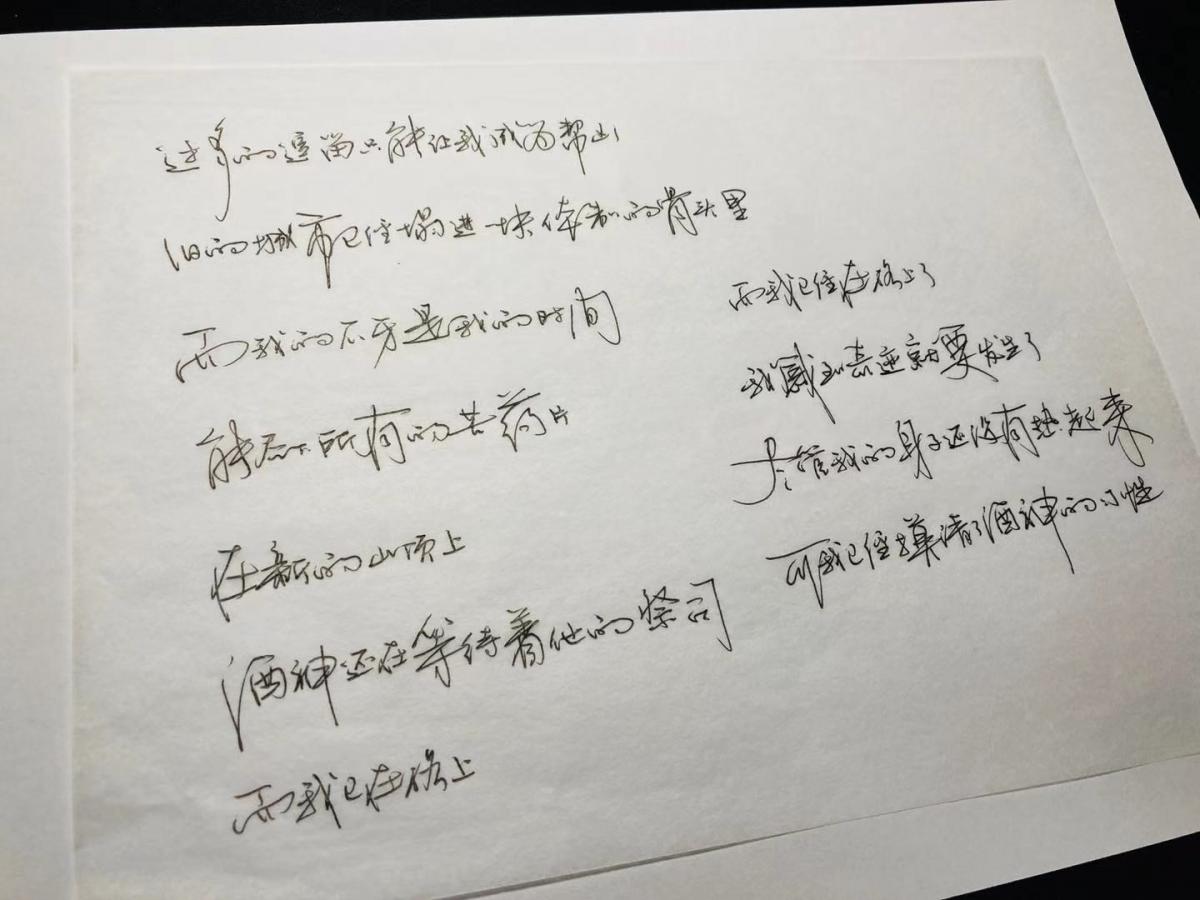 过多的逗留只能让我成为帮凶
旧的城市已经塌进一块体制的骨头里
而我的不牙是我的时间
能 所有的苦药片
在新的山顶上
酒神还在等待着他的祭司
而我已在路上
而我已经在路上了
我感到奇迹就要发生了
尽管我的身子还没有热起来
可我已经摸清了酒神的习性